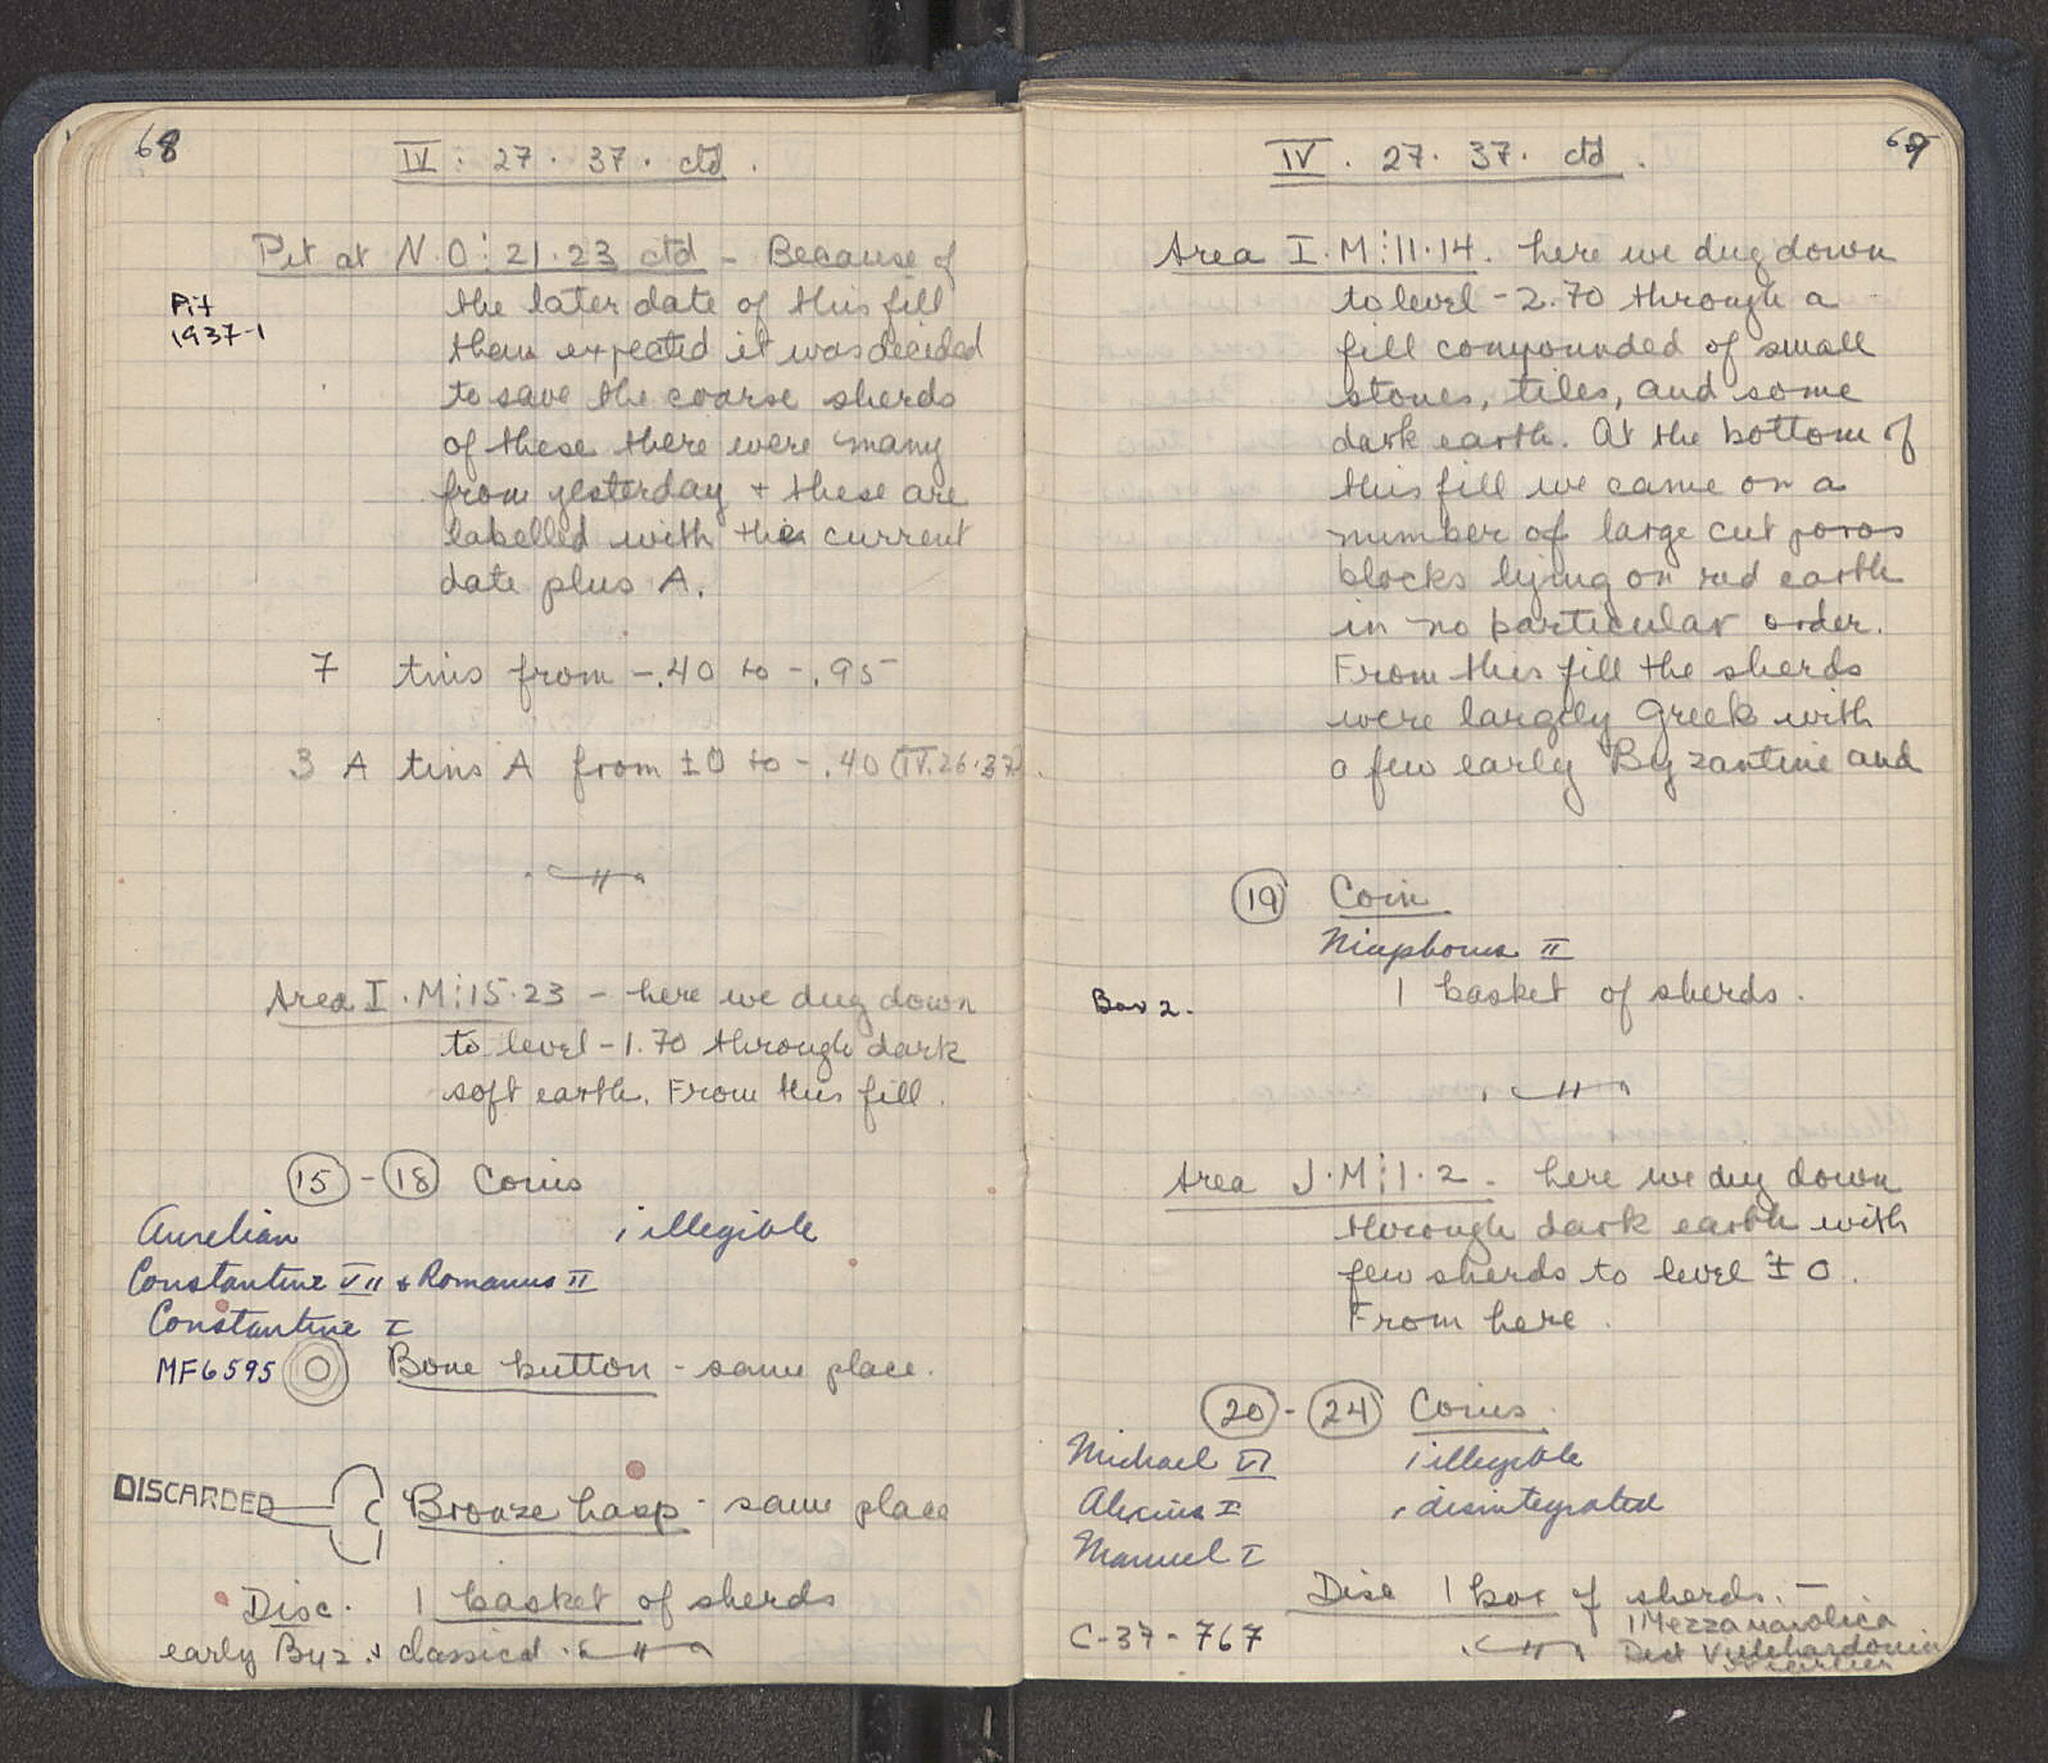 68
IV . 27 . 37 . ctd .
Pit at N.O:21.23 ctd - Because of
Pit
1937-1
the later date of this fill
than expected it was decided
to save the coarse sherds
of these there were many
from yesterday + these are
labelled with the current
date plus A.
7 tins from -.40 to -.95
3 A tins A from ±0 to -.40 (IV.26.37).
Area I.M:15.23 - here we dug down
to level -1.70 through dark
soft earth. From this fill.
15 - 18 Coins
Aurelian 1 illegible
Constantine VII & Romanus II
Constantine I
MF6595 Bone button - same place.
DISCARDED Bronze hasp - same place
Disc. 1 basket of sherds
early Byz. + classical.
69
IV . 27 . 37 . ctd .
Area I.M:11.14. here we dug down
to level -2.70 through a
fill compounded of small
stones, tiles, and some
dark earth. At the bottom of
this fill we came on a
number of large cut poros
blocks lying on red earth
in no particular order.
From this fill the sherds
were largely Greek with
a few early Byzantine and
19 Coin
Nicephorus II
Box 2. 1 basket of sherds.
Area J.M:1.2 - here we dug down
through dark earth with
few sherds to level ±0.
From here.
20 - 24 Coins.
Michael VI 1 illegible
Alexius I 1 disintegrated
Manuel I
Disc 1 box of sherds. -
1 Mezzamaiolica
C-37-767 Villehardouin